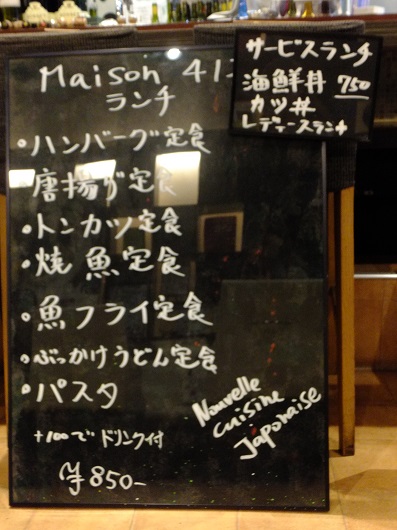 Maison 41
ランチ
・ハンバーグ定食
唐揚げ定食
・トンカツ定食
・焼魚定食
・魚フライ定食
・ぶっかけうどん定食
・パスタ
+100で ドリンク付
¥850-
Nouvelle
cuisine
Japonaise
サービスランチ
海鮮丼 750
カツ丼
レディースランチ